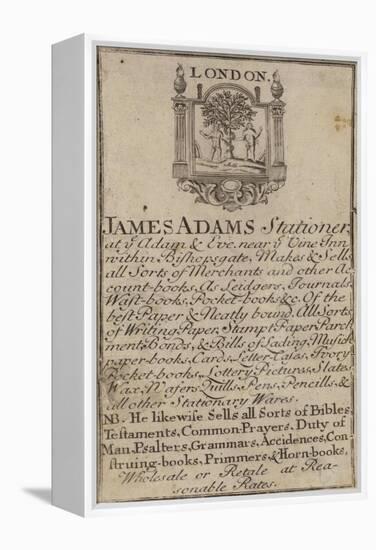 LONDON.
JAMES ADAMS Stationer,
at ye Adam & Eve near ye Vine Inn
within Bishopsgate, Makes & Sells
all Sorts of Merchants and other Ac
count-books, As Leidgers, Journals,
Wast-books, Pocket-books &c. Of the
best Paper & Neatly bound. All Sorts
of Writing Paper, Stampt Paper, Parch
ment, Bonds, & Bills of Lading, Musick
paper-books, Cards, Letter-Cases, Ivory
Pocket-books, Lottery Pictures, Slates,
Wax, Wafers, Quills, Pens, Pencills, &
all other Stationary Wares.
NB. He likewise Sells all Sorts of Bibles,
Testaments, Common-Prayers, Duty of
Man, Psalters, Grammars, Accidences, Con
struing-books, Primmers, & Horn-books,
Wholesale or Retale at Rea-
sonable Rates.